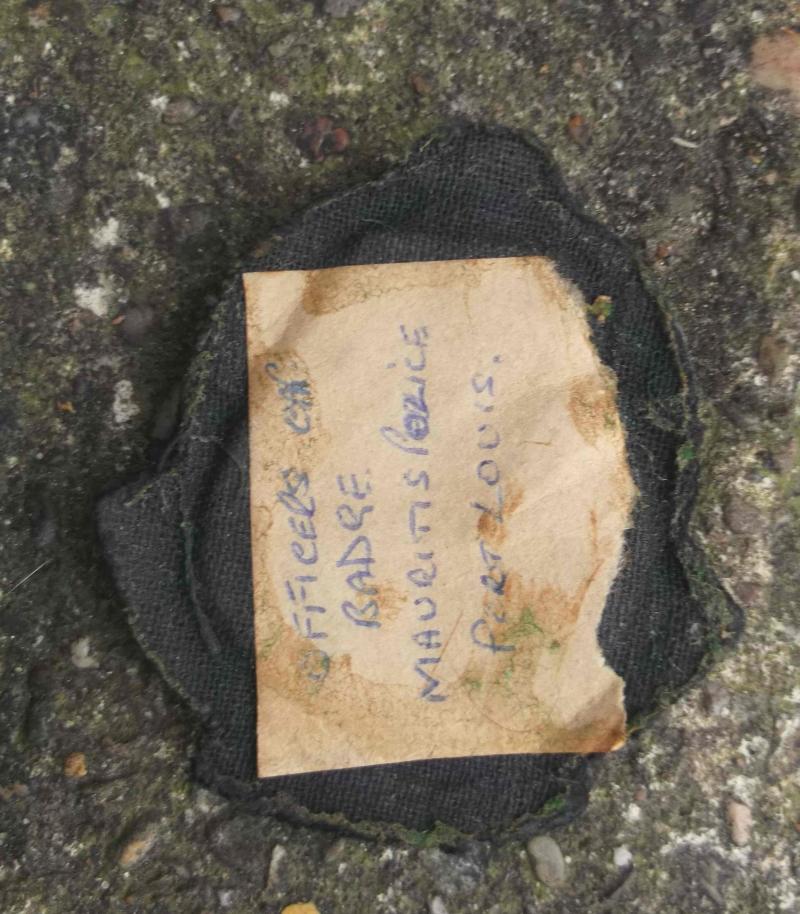 OFFICERS CAP
BADGE
MAURITIS POLICE
PORT LOUIS.